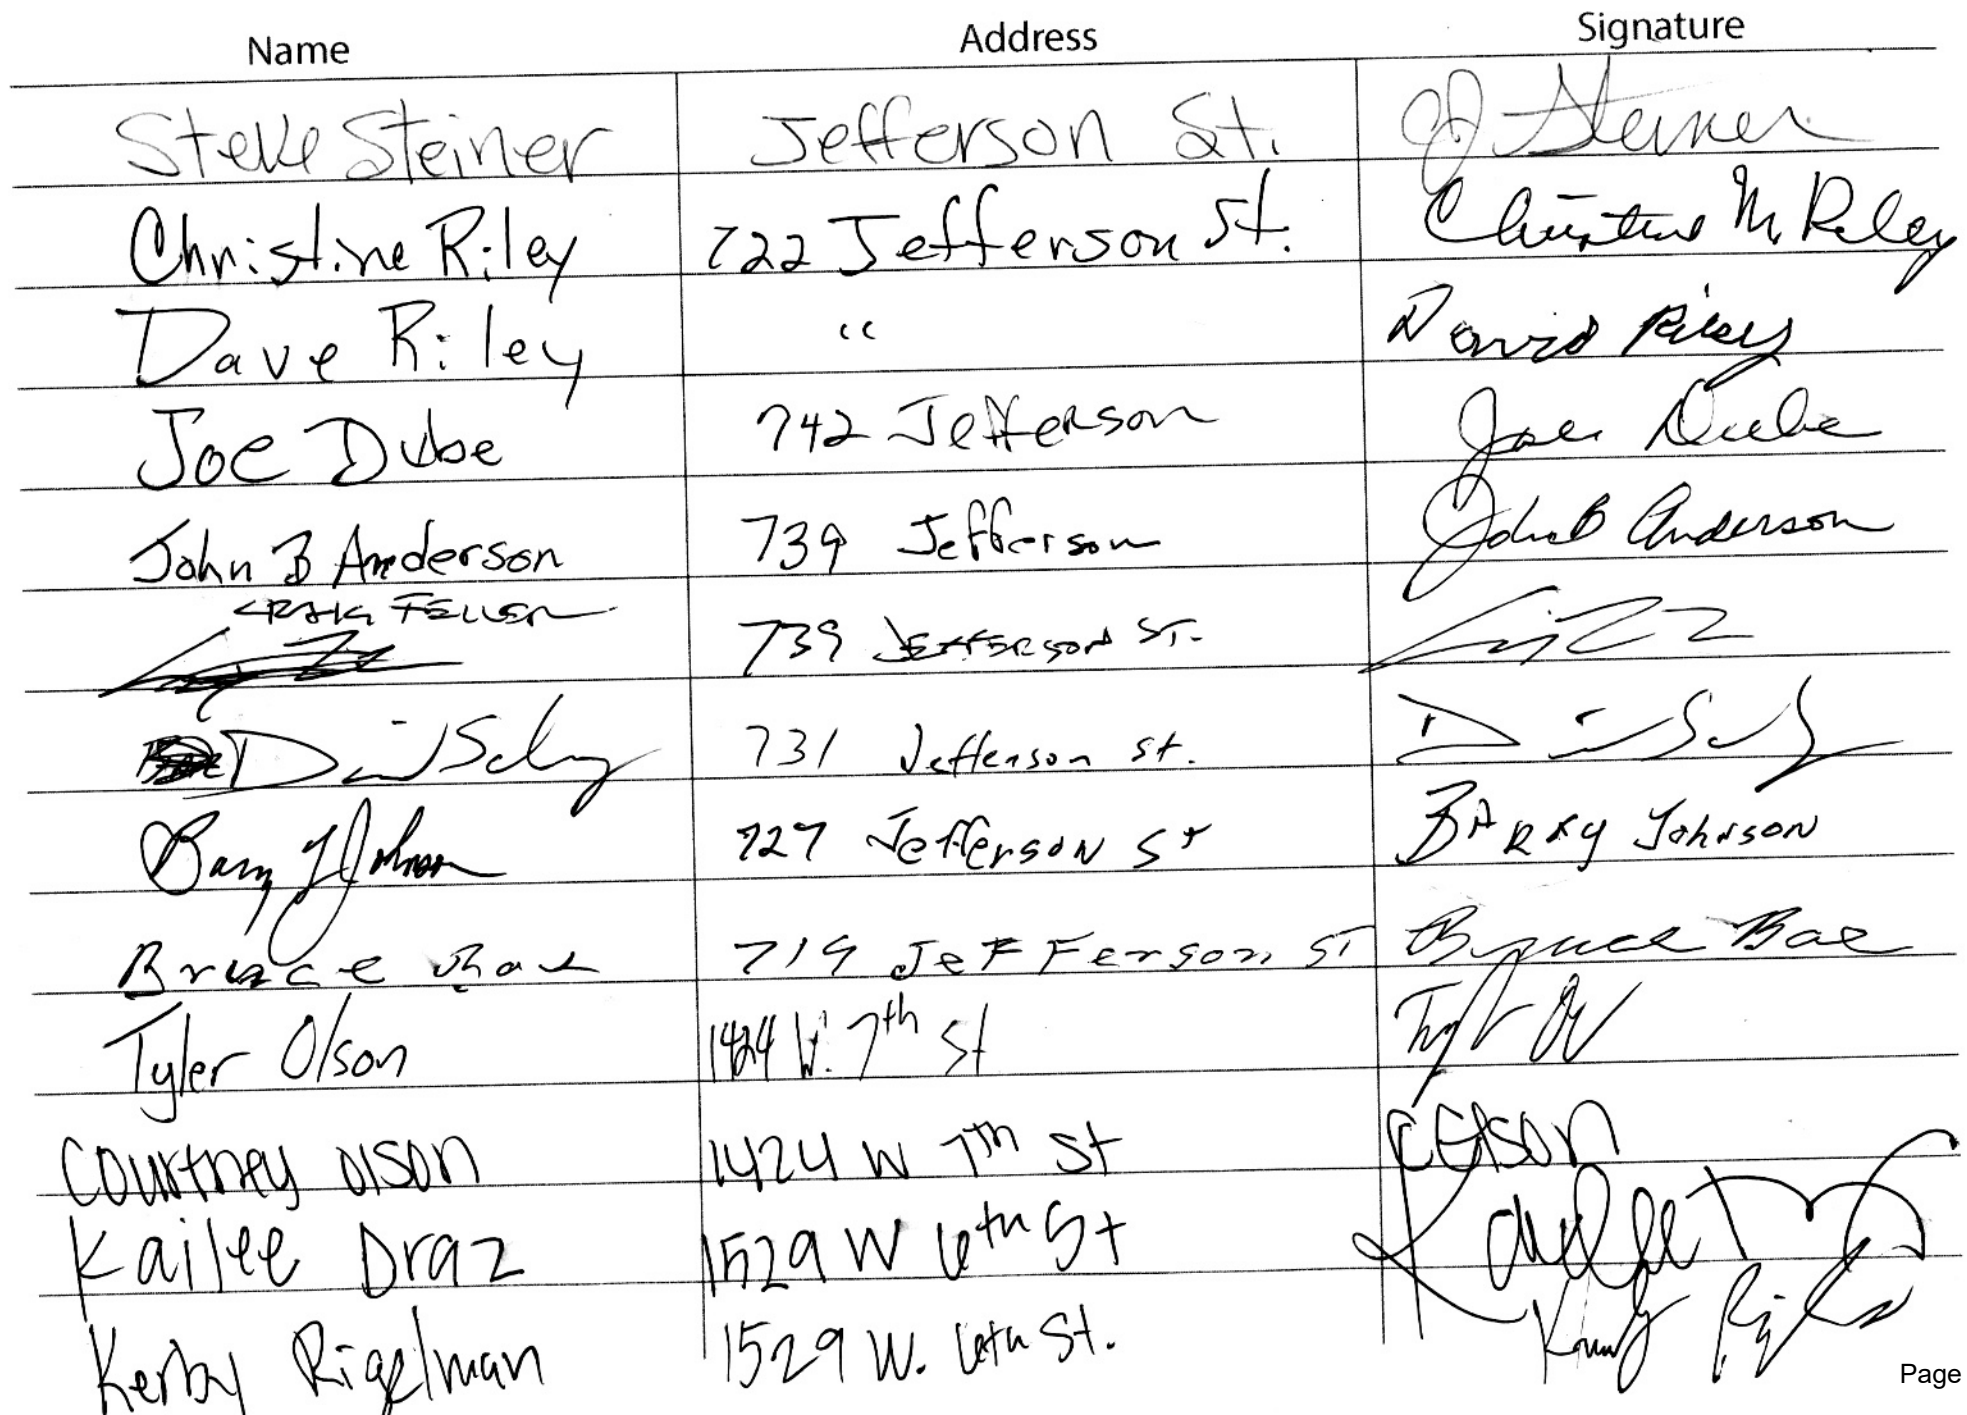 Name Address Signature
Steve Steiner Jefferson St. Steiner
Christine Riley 722 Jefferson St. Christine M. Riley
Dave Riley “ David Riley
Joe Dube 742 Jefferson Joe Dube
John B Anderson 739 Jefferson John B Anderson
CRAIG FELLER
739 JEFFERSON ST.
731 Jefferson st.
Barry J Johnson 727 Jefferson St BARRY Johnson
Bruce Bae 719 JeFFerson ST Bruce Bae
Tyler Olson 1424 W. 7th St
Courtney Olson 1424 W 7th St COlson
Kailee Draz 1529 W 6th St Kailee
Kerby Rigelman 1529 W. 6th St.
Page